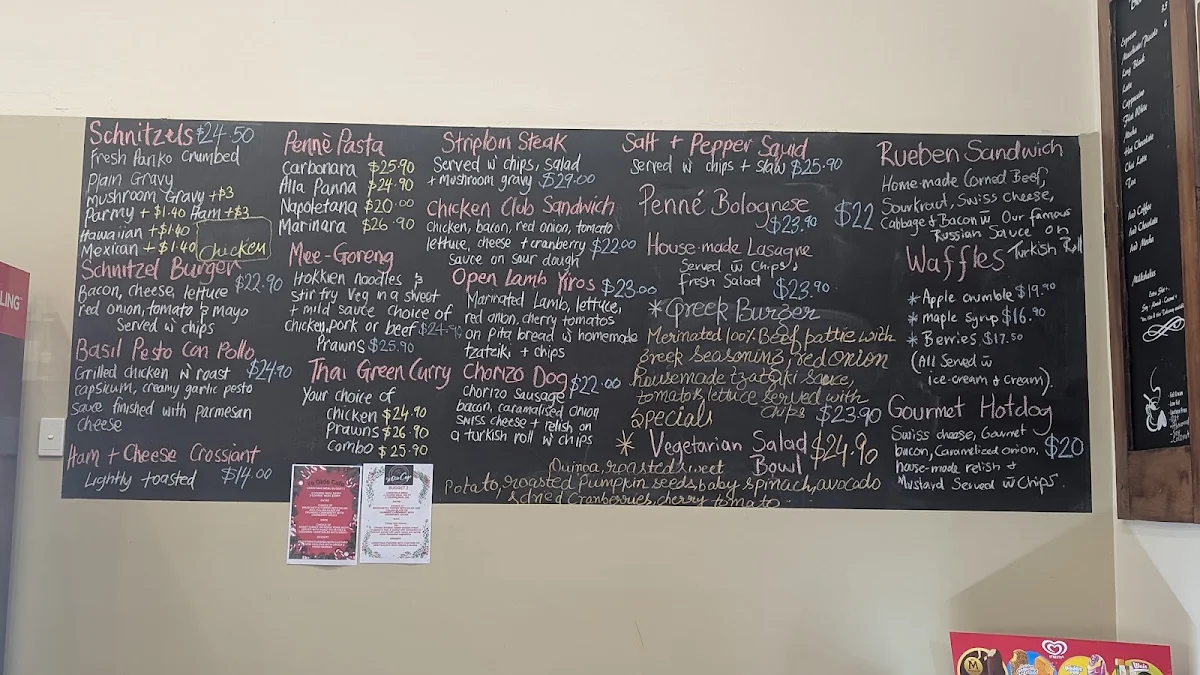 Schnitzels $24.50
Fresh Panko crumbed
Plain Gravy
Mushroom Gravy +$3
Parmy + $1.40 Ham +$3
Hawaiian +$1.40
Mexican + $1.40
Chicken
Schnitzel Burger $22.90
Bacon, cheese, lettuce
red onion, tomato & mayo
Served w chips
Basil Pesto Con Pollo
Grilled chicken w roast $24.90
capsicum, creamy garlic pesto
sauce finished with parmesan
cheese
Ham + Cheese Crossiant
Lightly toasted $14.00
Pennè Pasta
Carbonara $25.90
Alla Panna $24.90
Napoletana $20.00
Marinara $26.90
Mee-Goreng
Hokkien noodles &
stir fry veg in a sweet
+ mild sauce choice of
chicken, pork or beef $24.90
Prawns $25.90
Thai Green Curry
Your choice of
chicken $24.90
Prawns $26.90
Combo $25.90
Striploin Steak
Served w chips, salad
+ mushroom gravy $29.00
Chicken Club Sandwich
chicken, bacon, red onion, tomato
lettuce, cheese + cranberry $22.00
sauce on sour dough
Open Lamb Yiros $23.00
Marinated Lamb, lettuce,
red onion, cherry tomatos
on pita bread w homemade
tzatziki + chips
Chorizo Dog $22.00
Chorizo sausage
bacon, caramalised onion
swiss cheese + relish on
a turkish roll w chips
Salt + Pepper Squid
Served w chips + slaw $25.90
Penné Bolognese
$23.90
House-made Lasagne
Served w chips &
fresh salad $23.90
*Greek Burger
Merinated 100% Beef pattie with
greek seasoning, red onion
housemade tzatziki sauce,
tomato, lettuce served with
chips $23.90
Specials
* Vegetarian Salad Bowl $24.90
Quinoa, roasted sweet
potato, roasted pumpkin seeds, baby spinach, avocado
& dried cranberries, cherry tomato
Rueben Sandwich
$22
Home-made Corned Beef,
Sourkraut, Swiss cheese,
Cabbage & Bacon w Our famous
Russian Sauce on
Turkish Roll
Waffles
* Apple crumble $19.90
* maple syrup $16.90
* Berries $17.50
(All Served w
ice-cream & cream).
Gourmet Hotdog
Swiss cheese, Gourmet
bacon, Caramelized onion, $20
house-made relish &
Mustard Served w Chips.
Espresso
Long Black
Latte
Cappuccino
Flat White
Mocha
Hot Chocolate
Chai Latte
Tea
Iced Coffee
Iced Chocolate
Iced Mocha
Milkshakes
LING